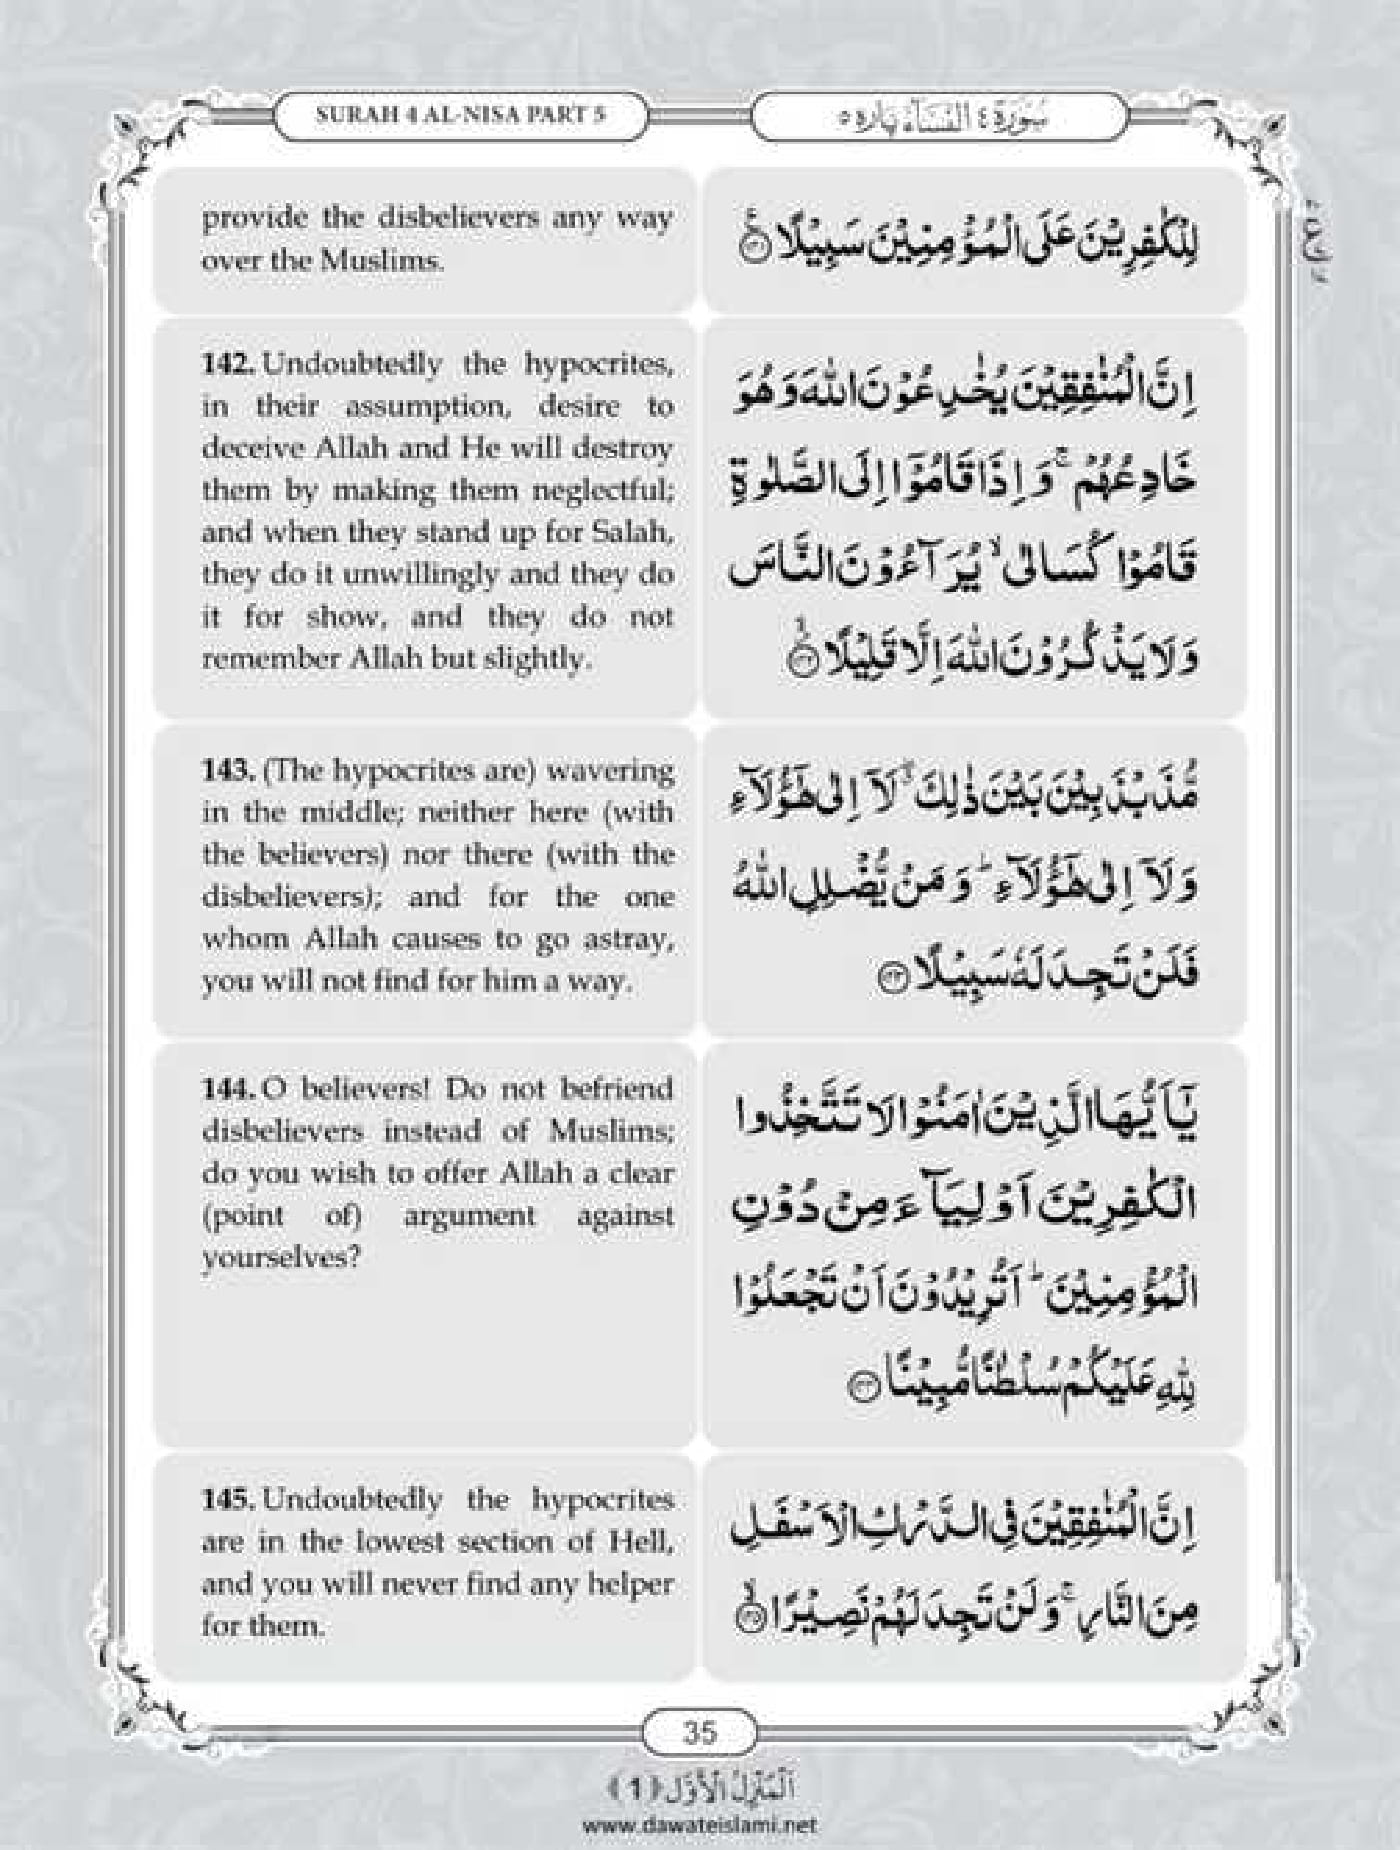 SURAH 4 AL-NISA PART 5
سُوْرَة ٤ اَلنِّسَآء پاره ٥
provide the disbelievers any way
over the Muslims.
لِلْكٰفِرِيْنَ عَلَى الْمُؤْمِنِيْنَ سَبِيْلًا
142. Undoubtedly the hypocrites,
in their assumption, desire to
deceive Allah and He will destroy
them by making them neglectful;
and when they stand up for Salah,
they do it unwillingly and they do
it for show, and they do not
remember Allah but slightly.
اِنَّ الْمُنٰفِقِيْنَ يُخٰدِعُوْنَ اللّٰهَ وَ هُوَ
خَادِعُهُمْ ۚ وَ اِذَا قَامُوْۤا اِلَى الصَّلٰوةِ
قَامُوْا كُسَالٰى ۙ يُرَآءُوْنَ النَّاسَ
وَ لَا يَذْكُرُوْنَ اللّٰهَ اِلَّا قَلِيْلًا ۙ﴿۱۴۲﴾
143. (The hypocrites are) wavering
in the middle; neither here (with
the believers) nor there (with the
disbelievers); and for the one
whom Allah causes to go astray,
you will not find for him a way.
مُّذَبْذَبِيْنَ بَيْنَ ذٰلِكَ ۖۗ لَاۤ اِلٰى هٰۤؤُلَآءِ
وَ لَاۤ اِلٰى هٰۤؤُلَآءِ ؕ وَ مَنْ يُّضْلِلِ اللّٰهُ
فَلَنْ تَجِدَ لَهٗ سَبِيْلًا ﴿۱۴۳﴾
144. O believers! Do not befriend
disbelievers instead of Muslims;
do you wish to offer Allah a clear
(point of) argument against
yourselves?
يٰۤاَيُّهَا الَّذِيْنَ اٰمَنُوْا لَا تَتَّخِذُوا
الْكٰفِرِيْنَ اَوْلِيَآءَ مِنْ دُوْنِ
الْمُؤْمِنِيْنَ ؕ اَتُرِيْدُوْنَ اَنْ تَجْعَلُوْا
لِلّٰهِ عَلَيْكُمْ سُلْطٰنًا مُّبِيْنًا ﴿۱۴۴﴾
145. Undoubtedly the hypocrites
are in the lowest section of Hell,
and you will never find any helper
for them.
اِنَّ الْمُنٰفِقِيْنَ فِى الدَّرْكِ الْاَسْفَلِ
مِنَ النَّارِ ۚ وَ لَنْ تَجِدَ لَهُمْ نَصِيْرًا ۙ﴿۱۴۵﴾
35
اَلْمَنْزِلُ الْاَوَّل ﴿1﴾
www.dawateislami.net